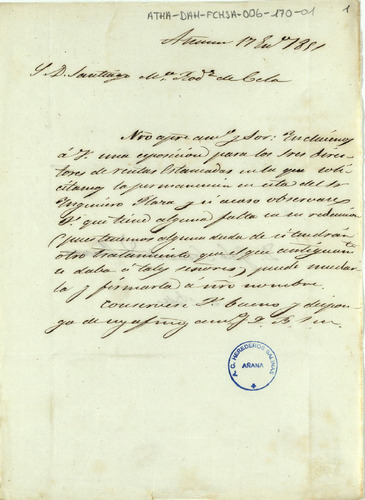 ATHA-DAH-FCHSA-006-170-01
1
17 En.º 1851
S. D. Santiago M.ª Rod.z de Cela
Nro y Sor: Incluimos
á V. una esposicion para los tres direc
tores de rentas Estancadas en la que soli
citamos la permanencia en esta del Sr
Ingeniero Plaza y si acaso observase
V. que tiene alguna falta en su redaccion
(pues tenemos alguna duda de si tendrán
otro tratamiento que el que antiguamte
se daba á tales señores) puede mudar
la y firmarla á nro nombre.
Conserve V. bueno y dispon
ga de
A. C. HEREDEROS SALINAS
AÑANA